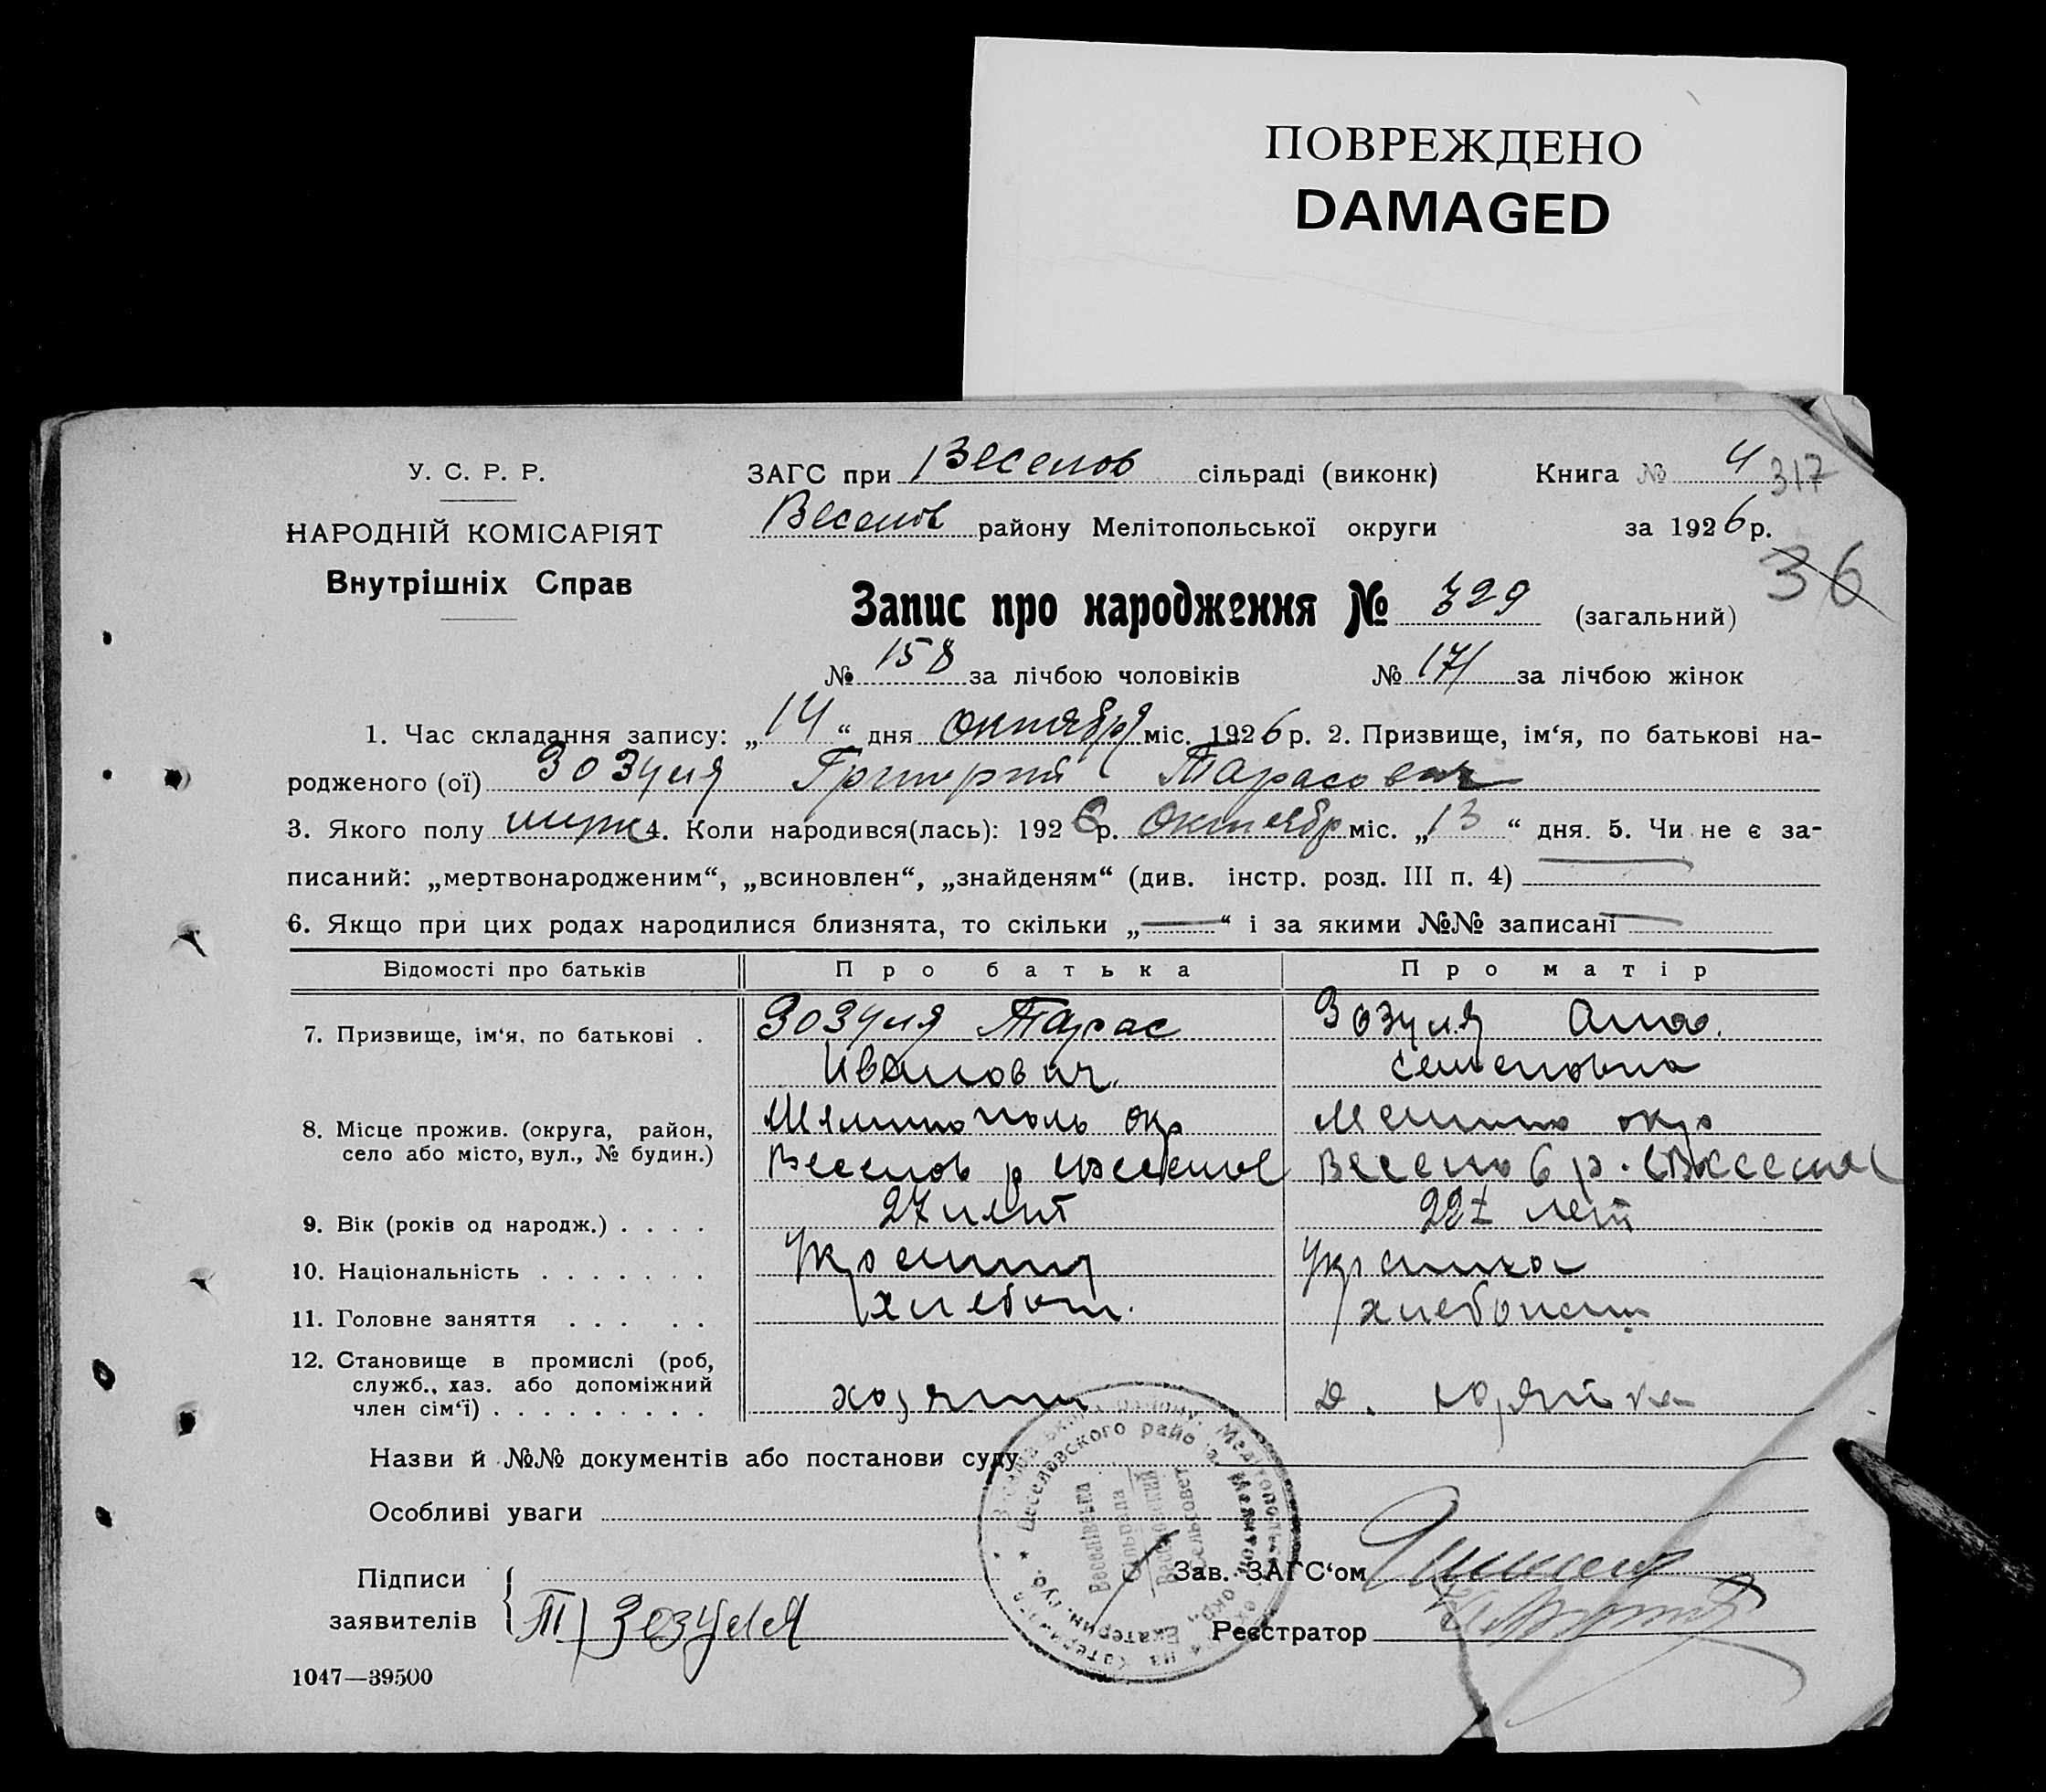 ПОВРЕЖДЕНО
DAMAGED
У. С. Р. Р.
НАРОДНІЙ КОМІСАРІЯТ
Внутрішніх Справ
ЗАГС при Веселов сільраді (виконк) Книга № 4
317
Веселов району Мелітопольської округи за 1926 р.
36
Запис про народження № 329 (загальний)
№ 158 за лічбою чоловіків № 171 за лічбою жінок
1. Час складання запису: „14“ дня октября міс. 1926 р. 2. Призвище, ім‘я, по батькові на-
родженого (ої) Зозуля Григорий Тарасович
3. Якого полу 4. Коли народився(лась): 1926 р. октябр міс. „13“ дня. 5. Чи не є за-
писаний: „мертвонародженим“, „всиновлен“, „знайденям“ (див. інстр. розд. III п. 4) —
6. Якщо при цих родах народилися близнята, то скільки „—“ і за якими №№ записані —
Відомості про батьків Про батька Про матір
7. Призвище, ім‘я, по батькові . Зозуля Тарас Зозуля Анна.
Иванович. Семеновна
8. Місце прожив. (округа, район, окр окр
село або місто, вул., № будин.) Веселов р Веселов р.
9. Вік (років од народж.) . . . . 27 лет 22 лет
10. Національність . . . . . . . Украинец Украинка
11. Головне заняття . . . . . хлебоп. хлебопаш
12. Становище в промислі (роб,
служб., хаз. або допоміжний
член сім‘ї) . . . . . . . . . хозяин д. хозяйка
Назви й №№ документів або постанови суду
Особливі уваги
Підписи
заявителів Т Зозуля
Зав. ЗАГС‘ом
Реєстратор
Веселівська
Сільрада
Веселовский
Сельсовет
1047—39500